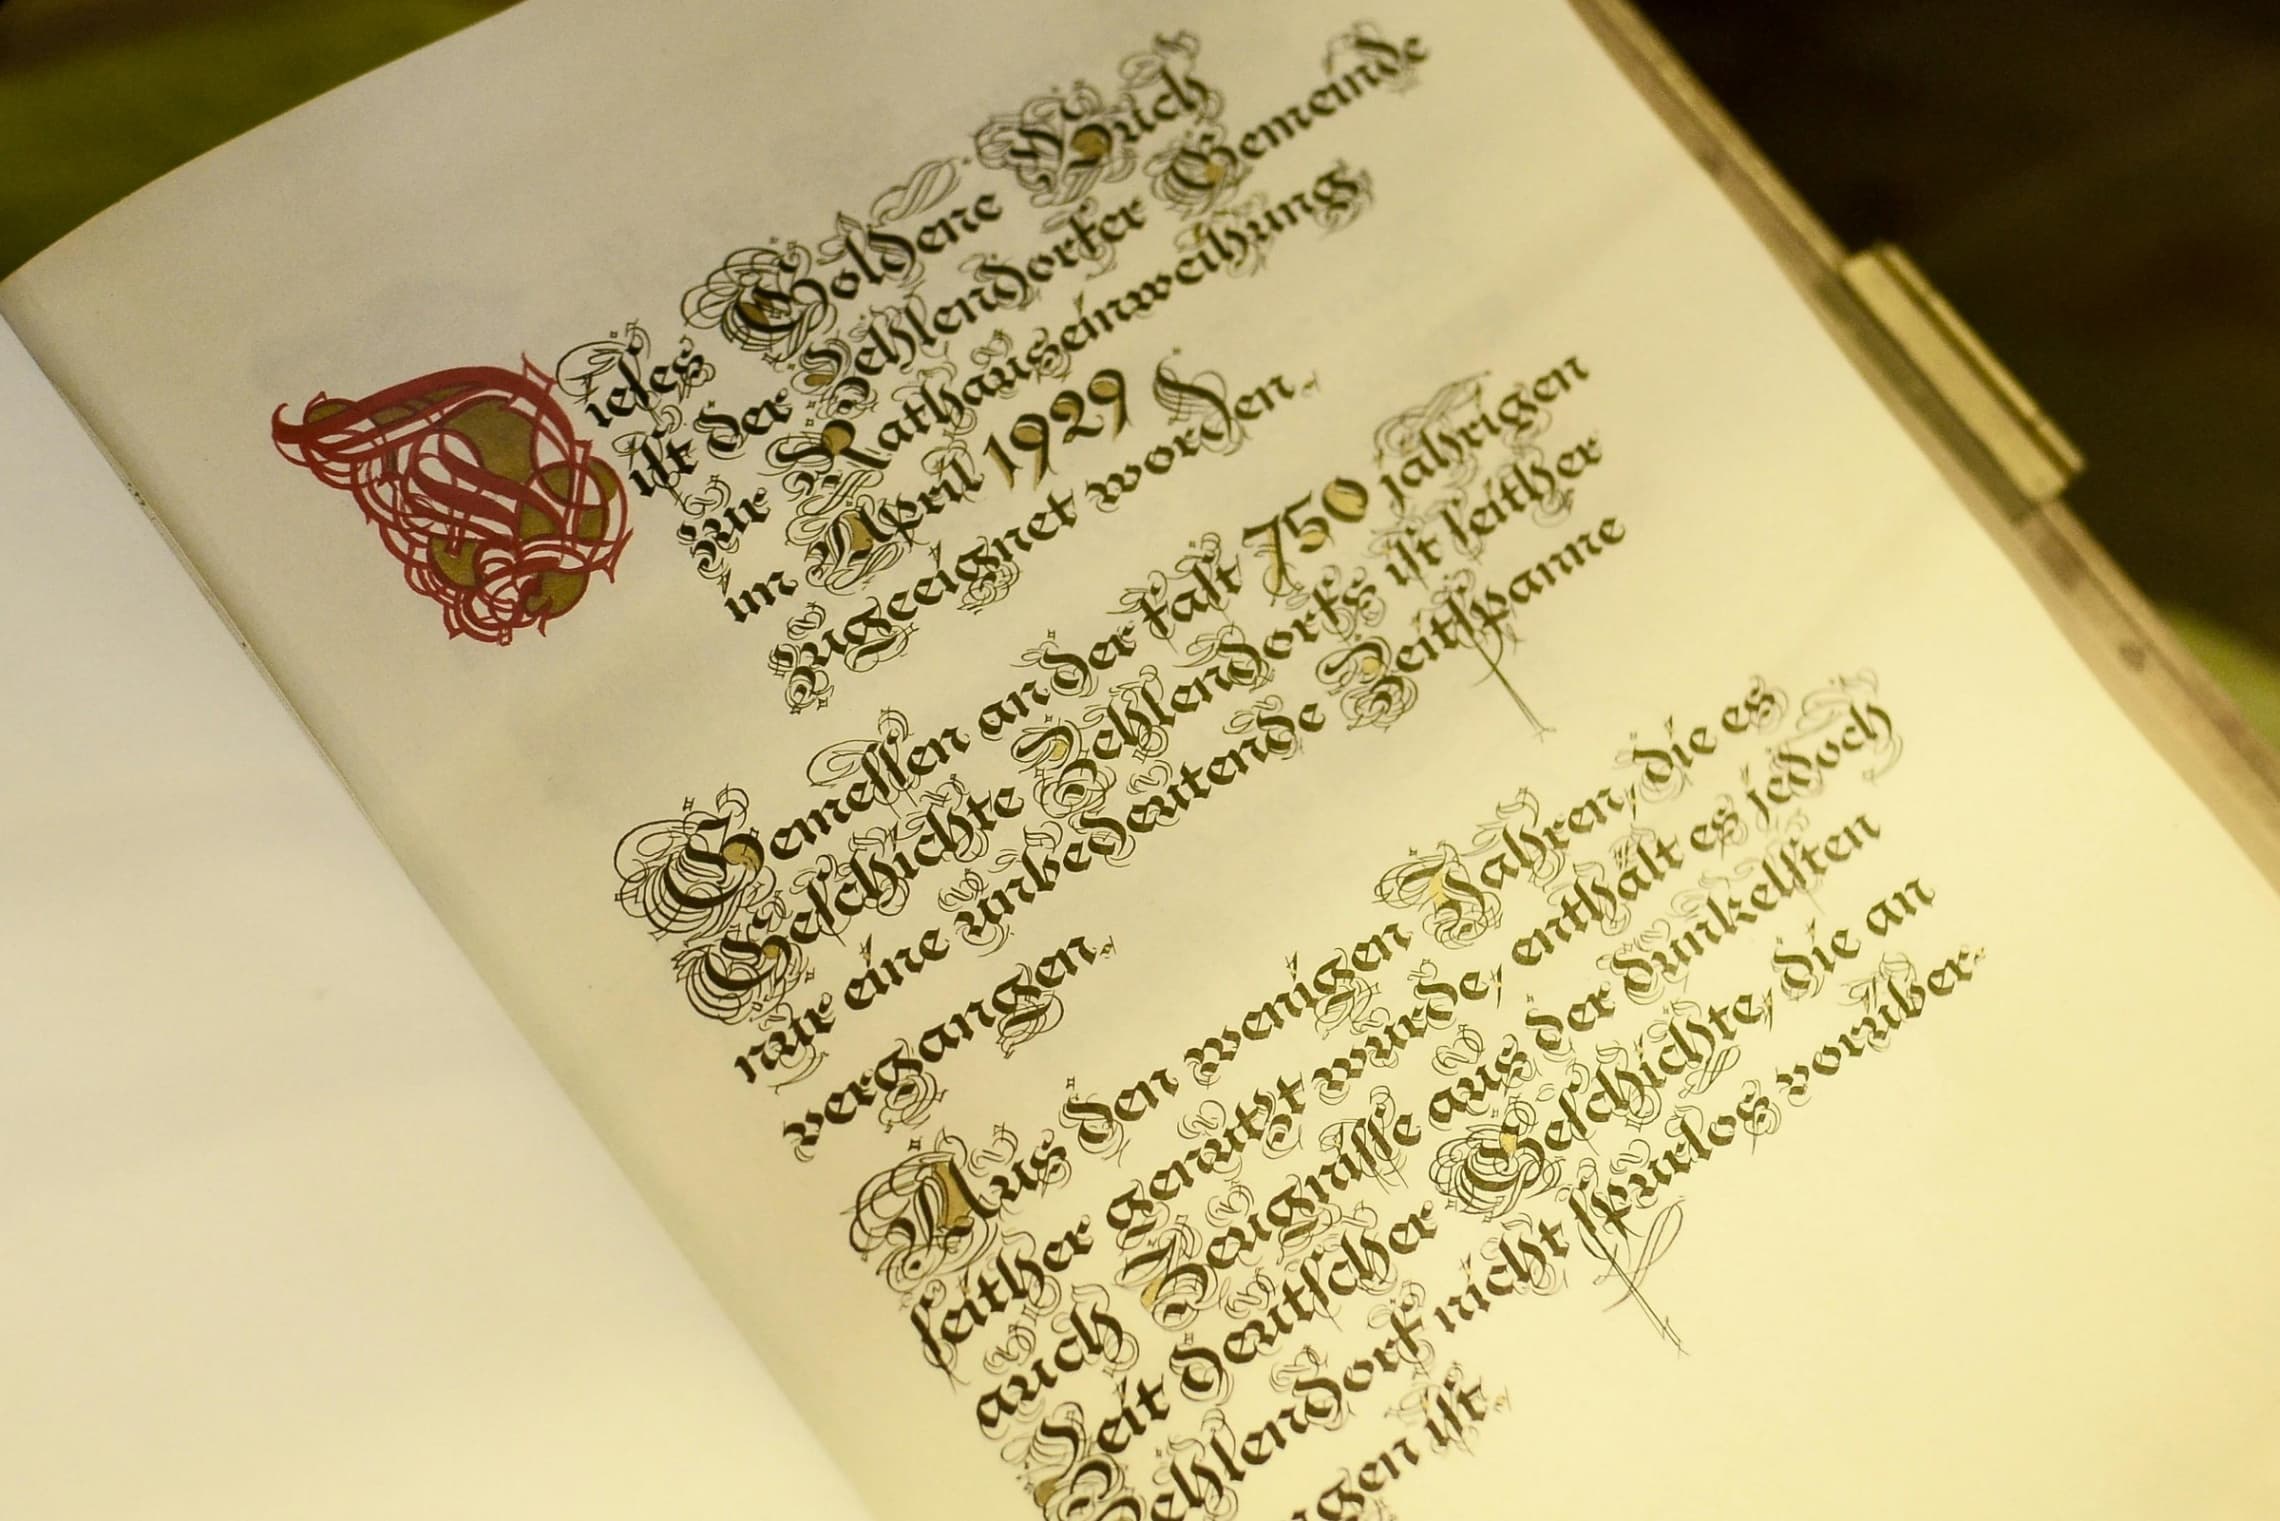 Dieses Goldene Buch
ist der Zehlendorfer Gemeinde
zur Rathauseinweihung
im April 1929
zugeeignet worden.
Gemessen an der fast 750 jährigen
Geschichte Zehlendorfs ist seither
nur eine unbedeutende Zeitspanne
vergangen.
Aus den wenigen Jahren, die es
seither genutzt wurde, enthält es jedoch
auch Zeugnisse aus der dunkelsten
Zeit deutscher Geschichte, die an
Zehlendorf nicht spurlos vorüber
gen ist.